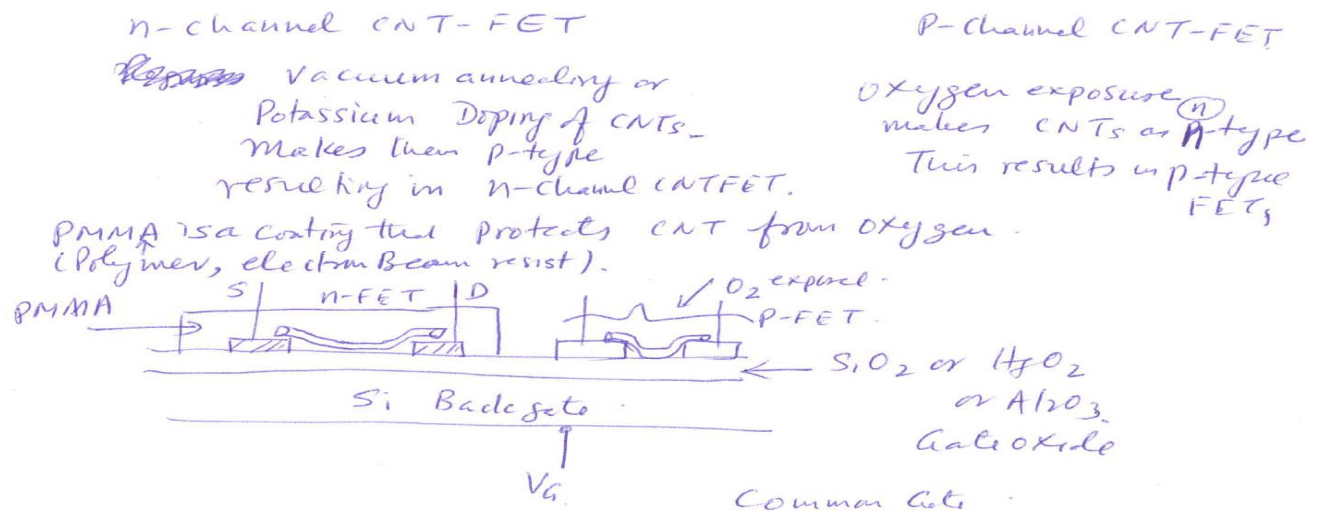 n-channel CNT-FET
Vacuum annealing or
Potassium Doping of CNTs
makes them p-type
resulting in n-channel CNTFET.
P-Channel CNT-FET
Oxygen exposure
makes CNTs as n-type
This results in p-type
FETs
PMMA is a coating that protects CNT from oxygen.
(Polymer, electron Beam resist).
S n-FET D
O2 exposed.
PMMA
P-FET.
SiO2 or HfO2
or Al2O3
Gate oxide
Si Back gate
VG
Common Gate